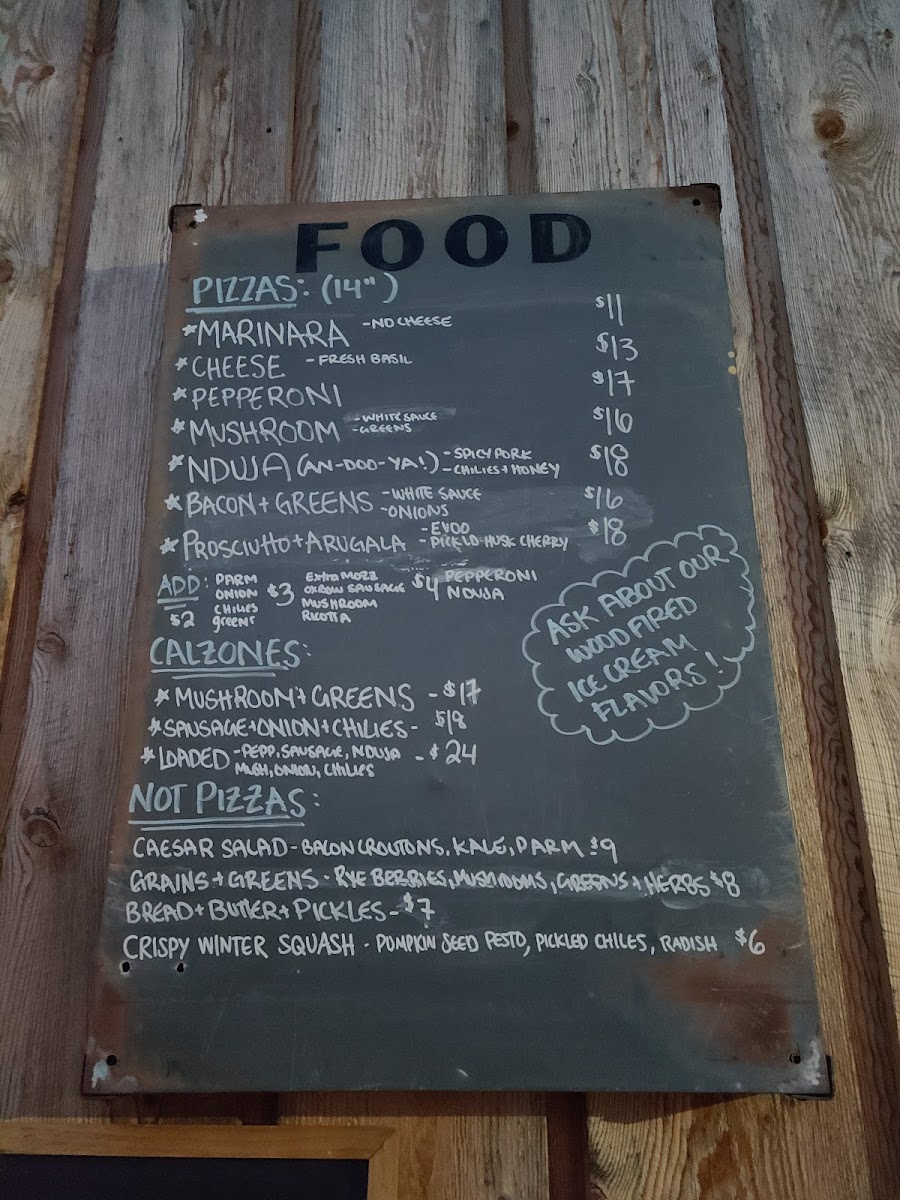 FOOD
PIZZAS: (14")
*MARINARA -NO CHEESE $11
*CHEESE -FRESH BASIL $13
*PEPPERONI $17
*MUSHROOM -WHITE SAUCE -GREENS $16
*NDUJA (AN-DOO-YA!) -SPICY PORK -CHILIES+HONEY $18
*BACON+GREENS -WHITE SAUCE -ONIONS $16
*PROSCIUTTO+ARUGALA -EVOO -PICKLD HUSK CHERRY $18
ADD:
$2 PARM
ONION
CHILIES
greens
$3 EXTRA MOZZ
OXBOW SAUSAGE
MUSHROOM
RICOTTA
$4 PEPPERONI
NDUJA
ASK ABOUT OUR
WOOD FIRED
ICE CREAM
FLAVORS!
CALZONES:
*MUSHROOM+GREENS -$17
*SAUSAGE+ONION+CHILIES- $18
*LOADED -PEPP, SAUSAGE, NDUJA -$24
MUSH, ONION, CHILIES
NOT PIZZAS:
CAESAR SALAD-BACON CROUTONS, KALE, PARM $9
GRAINS+GREENS-RYE BERRIES, MUSHROOMS, GREENS+HERBS $8
BREAD+BUTTER+PICKLES-$7
CRISPY WINTER SQUASH - PUMPKIN SEED PESTO, PICKLED CHILES, RADISH $6